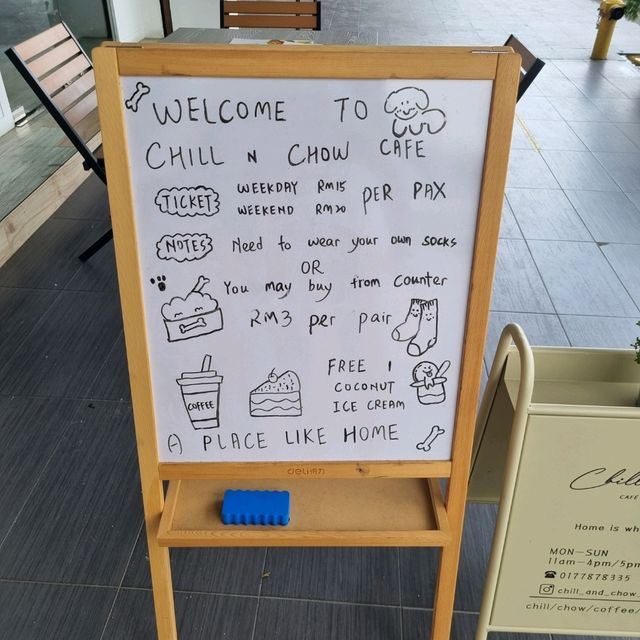 WELCOME TO
CHILL N CHOW CAFE
TICKET WEEKDAY RM15 PER PAX
WEEKEND RM20
NOTES Need to wear your own socks
OR
You may buy from counter
RM3 per pair
COFFEE
FREE 1
COCONUT
ICE CREAM
A PLACE LIKE HOME
deli
Chill
CAFE
Home is whe
MON-SUN
11am-4pm/5pm
0177878335
chill_and_chow
chill/chow/coffee/